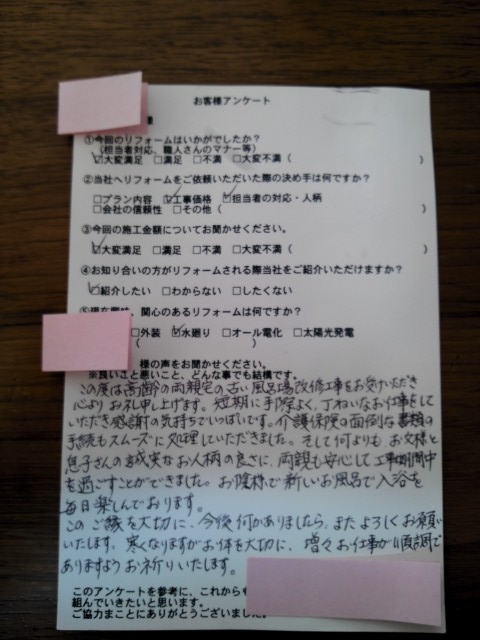 お客様アンケート
様
①今回のリフォームはいかがでしたか？
（担当者対応、職人さんのマナー等）
☑大変満足 □満足 □不満 □大変不満（ ）
②当社へリフォームをご依頼いただいた際の決め手は何ですか？
□プラン内容 ☑工事価格 ☑担当者の対応・人柄
□会社の信頼性 □その他（ ）
③今回の施工金額についてお聞かせください。
☑大変満足 □満足 □不満 □大変不満（ ）
④お知り合いの方がリフォームされる際当社をご紹介いただけますか？
☑紹介したい □わからない □したくない
⑤現在興味、関心のあるリフォームは何ですか？
□外装 ☑水廻り □オール電化 □太陽光発電
（ ）
様の声をお聞かせください。
※良いこと悪いこと、どんな事でも結構です。
この度は高齢の両親宅の古い風呂場改修工事をお受けいただき
心よりお礼申し上げます。短期に手際よく、丁ねいなお仕事をして
いただき感謝の気持ちでいっぱいです。介護保険の面倒な書類の
手続もスムーズに処理していただきました。そして何よりも、お父様と
息子さんの誠実なお人柄の良さに、両親も安心して工事期間中
を過ごすことができました。お陰様で新しいお風呂で入浴を
毎日楽しんでおります。
このご縁を大切に、今後何かありましたら、またよろしくお願い
いたします。寒くなりますがお体を大切に、増々お仕事が順調で
ありますようお祈りいたします。
このアンケートを参考に、これからも
組んでいきたいと思います。
ご協力まことにありがとうございました。